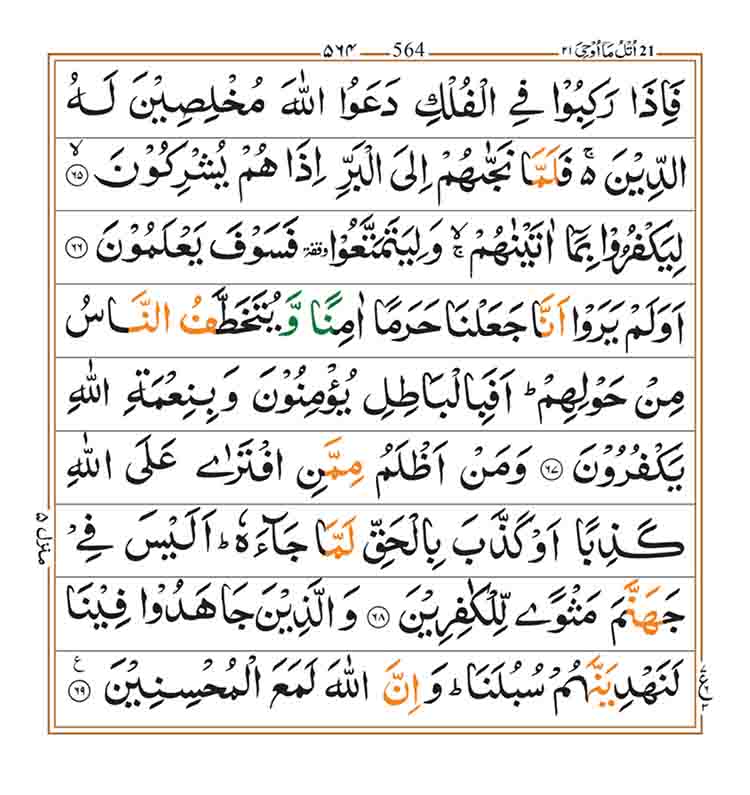 21 اُتْلُ مَاۤ اُوْحِیَ ۲۱ 564 ۵۶۴
فَاِذَا رَكِبُوْا فِی الْفُلْكِ دَعَوُا اللّٰهَ مُخْلِصِیْنَ لَهُ
الدِّیْنَ ۚ۬ فَلَمَّا نَجّٰىهُمْ اِلَی الْبَرِّ اِذَا هُمْ یُشْرِكُوْنَ ۙ﴿۶۵﴾
لِیَكْفُرُوْا بِمَاۤ اٰتَیْنٰهُمْ ۙۚ وَ لِیَتَمَتَّعُوْا وقفة فَسَوْفَ یَعْلَمُوْنَ ﴿۶۶﴾
اَوَ لَمْ یَرَوْا اَنَّا جَعَلْنَا حَرَمًا اٰمِنًا وَّ یُتَخَطَّفُ النَّاسُ
مِنْ حَوْلِهِمْ ؕ اَفَبِالْبَاطِلِ یُؤْمِنُوْنَ وَ بِنِعْمَةِ اللّٰهِ
یَكْفُرُوْنَ ﴿۶۷﴾ وَ مَنْ اَظْلَمُ مِمَّنِ افْتَرٰی عَلَی اللّٰهِ
كَذِبًا اَوْ كَذَّبَ بِالْحَقِّ لَمَّا جَآءَهٗ ؕ اَلَیْسَ فِیْ
جَهَنَّمَ مَثْوًی لِّلْكٰفِرِیْنَ ﴿۶۸﴾ وَ الَّذِیْنَ جَاهَدُوْا فِیْنَا
لَنَهْدِیَنَّهُمْ سُبُلَنَا ؕ وَ اِنَّ اللّٰهَ لَمَعَ الْمُحْسِنِیْنَ ﴿۶۹﴾ ع
منزل ۵